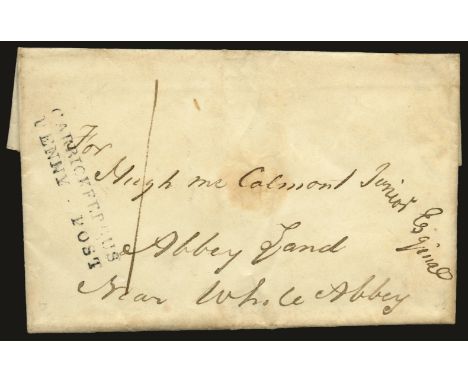 CARRICKFERGUS
PENNY . POST
1
For
Hugh mc Calmont Junior Esquire
Abbey Land
Near White Abbey